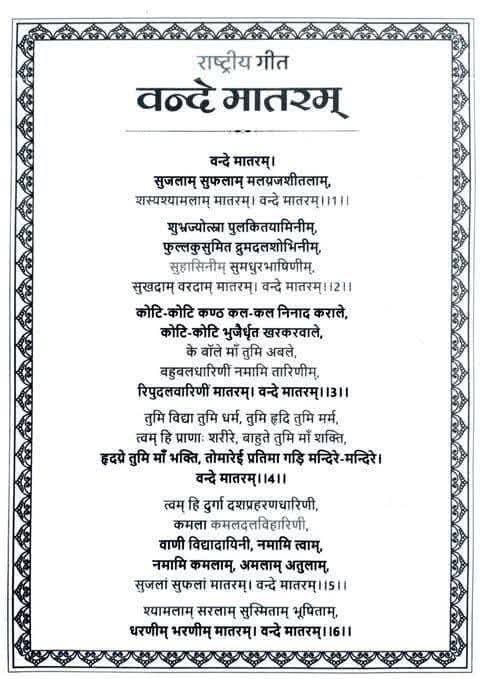 राष्ट्रीय गीत
वन्दे मातरम्
वन्दे मातरम्।
सुजलाम् सुफलाम् मलयजशीतलाम्,
शस्यश्यामलाम् मातरम्। वन्दे मातरम्।।1।।
शुभ्रज्योत्स्ना पुलकितयामिनीम्,
फुल्लकुसुमित द्रुमदलशोभिनीम्,
सुहासिनीम् सुमधुरभाषिणीम्,
सुखदाम् वरदाम् मातरम्। वन्दे मातरम्।।2।।
कोटि-कोटि कण्ठ कल-कल निनाद कराले,
कोटि-कोटि भुजैर्धृत खरकरवाले,
के बॉले माँ तुमि अबले,
वहुबलधारिणीं नमामि तारिणीम्,
रिपुदलवारिणीं मातरम्। वन्दे मातरम्।।3।।
तुमि विद्या तुमि धर्म, तुमि हृदि तुमि मर्म,
त्वम् हि प्राणाः शरीरे, बाहुते तुमि माँ शक्ति,
हृदये तुमि माँ भक्ति, तोमारेई प्रतिमा गड़ि मन्दिरे-मन्दिरे।
वन्दे मातरम्।।4।।
त्वम् हि दुर्गा दशप्रहरणधारिणी,
कमला कमलदलविहारिणी,
वाणी विद्यादायिनी, नमामि त्वाम्,
नमामि कमलाम्, अमलाम् अतुलाम्,
सुजलां सुफलां मातरम्। वन्दे मातरम्।।5।।
श्यामलाम् सरलाम् सुस्मिताम् भूषिताम्,
धरणीम् भरणीम् मातरम्। वन्दे मातरम्।।6।।